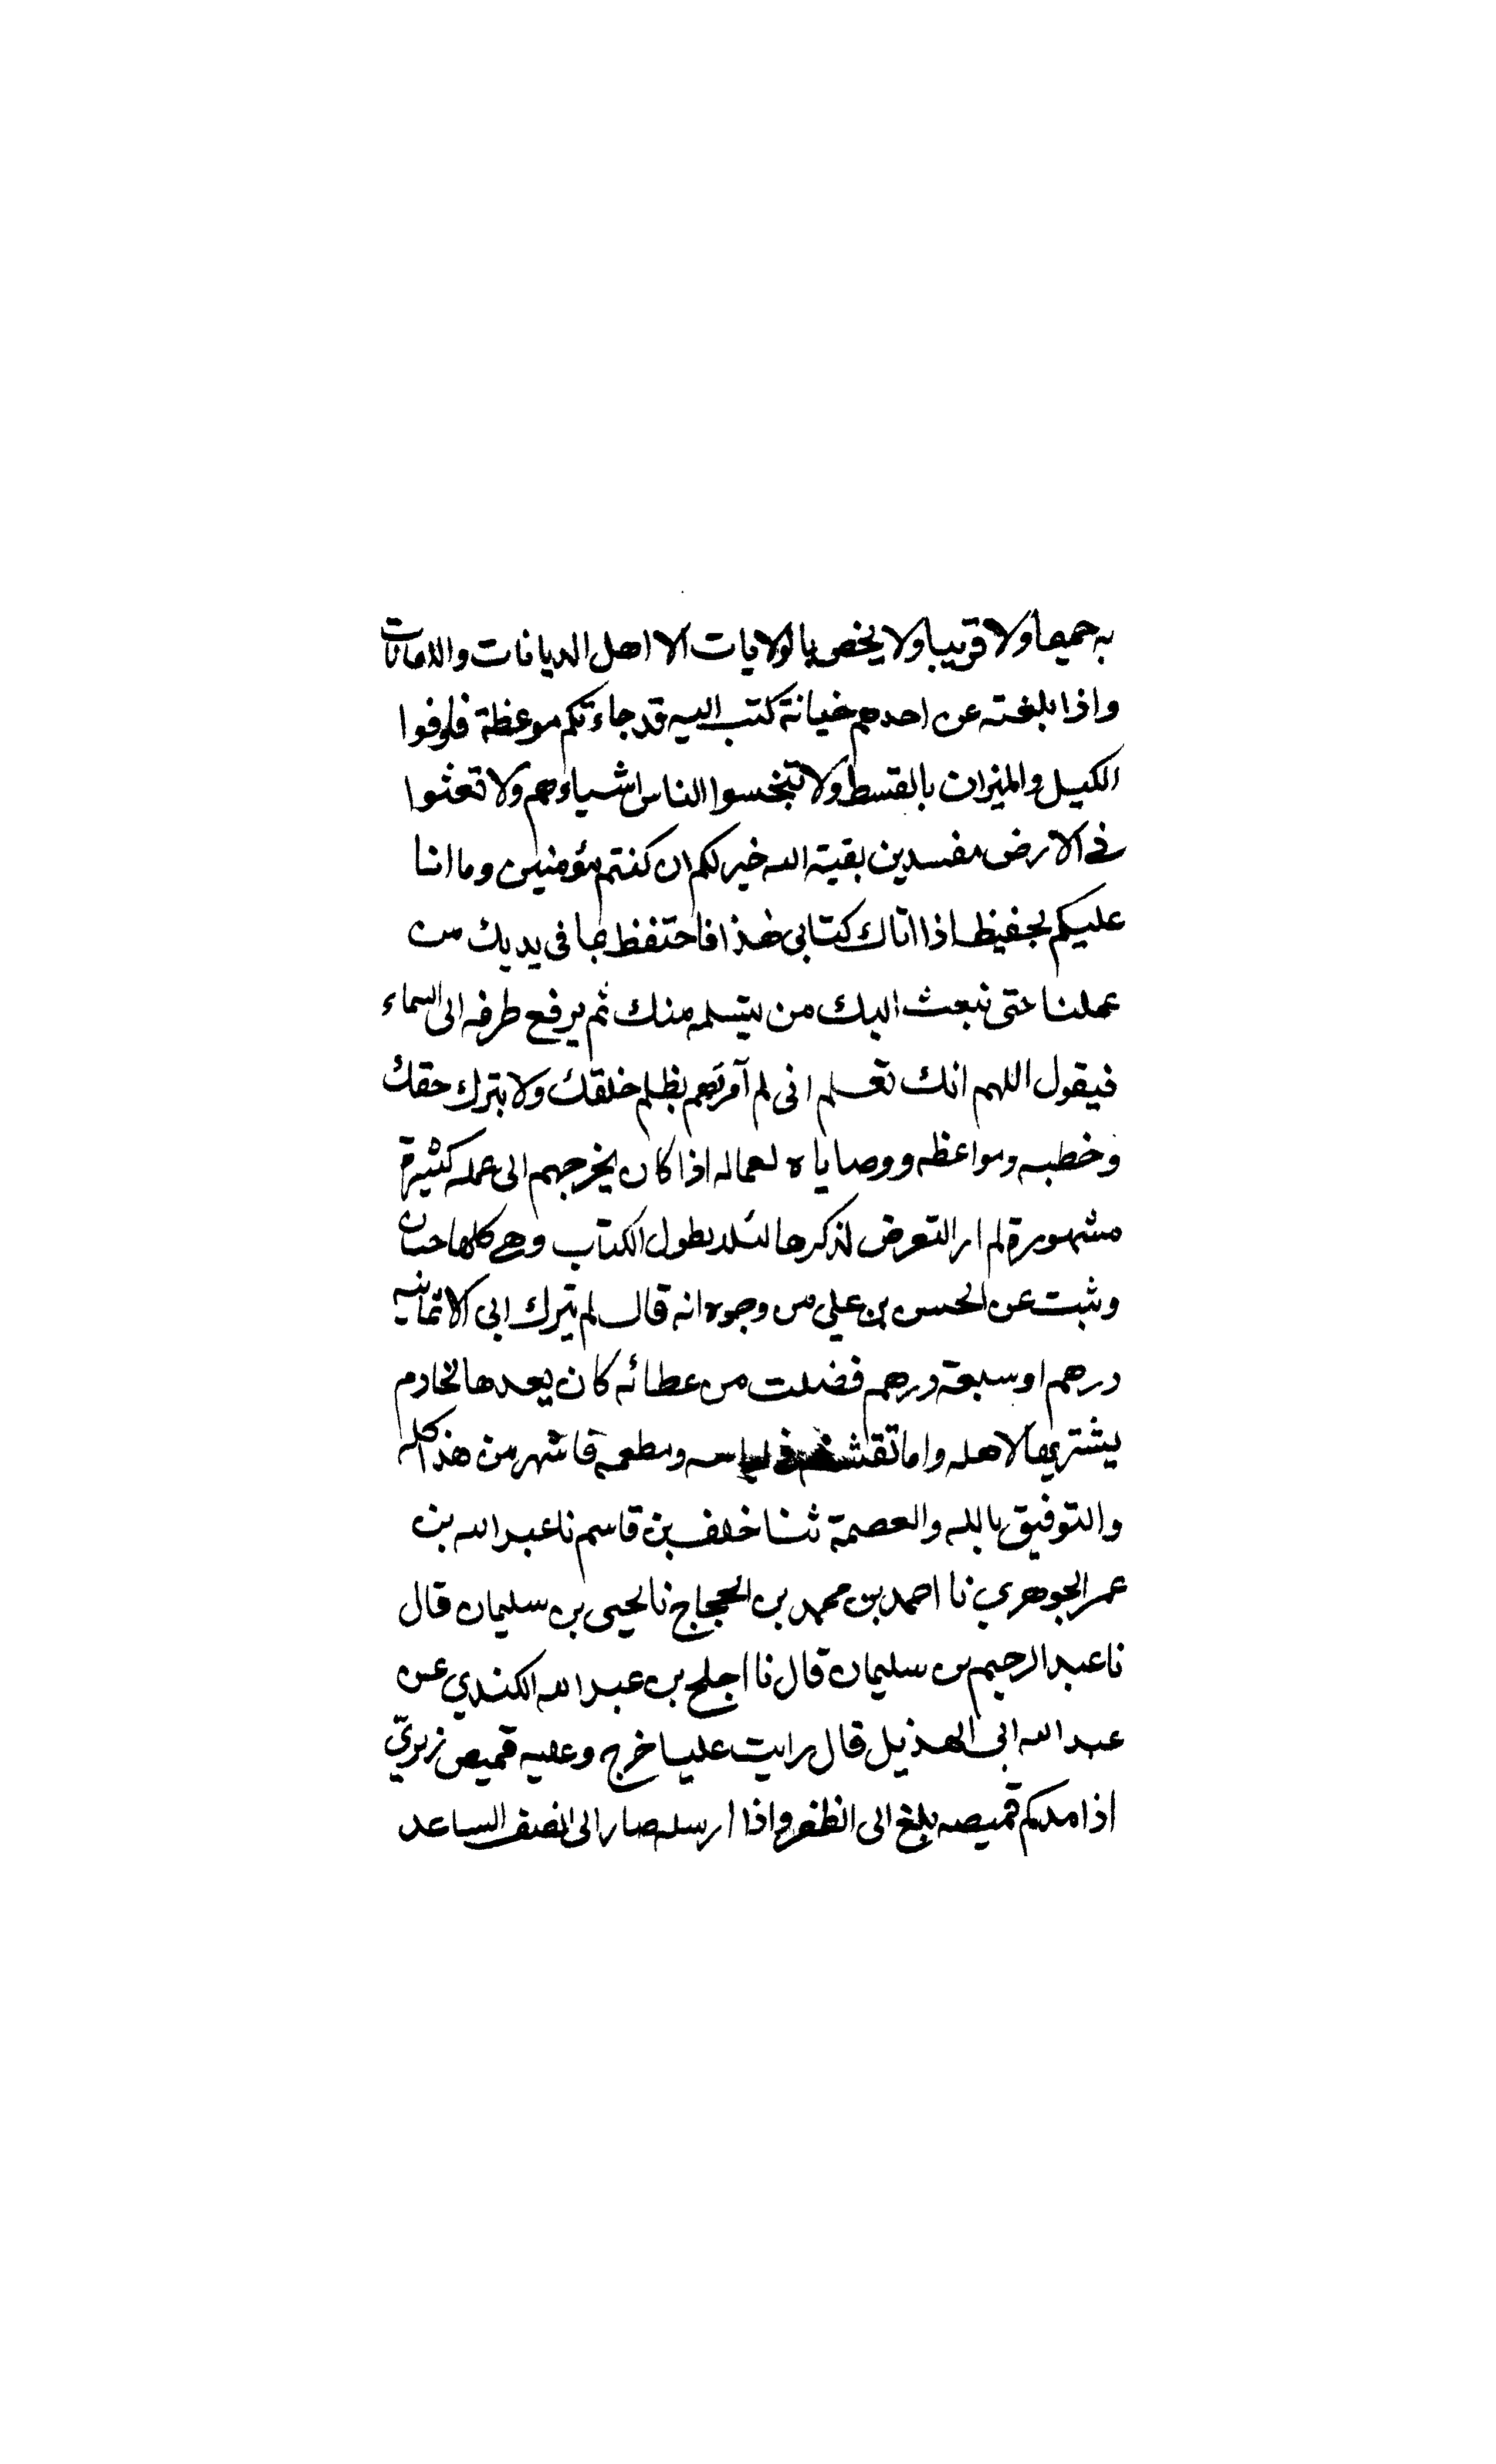 به حميما ولا قريبا ولا يخص بالولايات الا اهل الديانات والامانات
واذا بلغته عن احدهم خيانة كتب اليه قد جاءتكم موعظة فاوفوا
الكيل والميزان بالقسط ولا تبخسوا الناس اشياءهم ولا تعثوا
في الارض مفسدين بقية الله خير لكم ان كنتم مؤمنين وما انا
عليكم بحفيظ اذا اتاك كتابي هذا فاحتفظ بما في يديك من
عملنا حتى نبعث اليك من يتسلمه منك ثم يرفع طرفه الى السماء
فيقول اللهم انك تعلم انى لم آمرهم بظلم خلقك ولا بترك حقك
وخطبه ومواعظه ووصاياه لعماله اذا كان يخرجهم الى عمله كثيرة
مشهورة لم ار التعرض لذكرها لئلا يطول الكتاب وهي كلها حسان
وثبت عن الحسن بن علي من وجوه انه قال لم يترك ابي الا ثمانيه
درهم او سبعة درهم فضلت من عطائه كان يعدها لخادم
يشتريها لاهله واما تقشفه في لباسه ومطعمه فاشهر من هذا كله
والتوفيق بالله والعصمة ثنا خلف بن قاسم نا عبد الله بن
عمر الجوهري نا احمد بن محمد بن الحجاج نا يحيى بن سليمان قال
نا عبد الرحيم بن سليمان قال نا اجلح بن عبد الله الكندي عن
عبد الله ابى الهذيل قال رايت عليا خرج وعليه قميص رازيّ
اذا مد كم قميصه بلغ الى الظفر واذا ارسله صار الى نصف الساعد